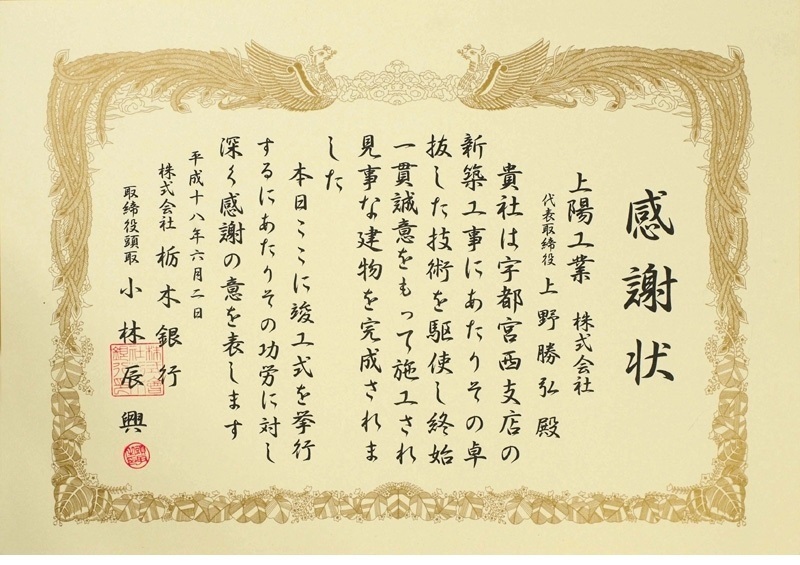 感謝状
上陽工業 株式会社
代表取締役 上野勝弘 殿
貴社は宇都宮西支店の
新築工事にあたりその卓
抜した技術を駆使し終始
一貫誠意をもって施工され
見事な建物を完成されま
した
本日ここに竣工式を挙行
するにあたりその功労に対し
深く感謝の意を表します
平成十八年六月二日
株式会社 栃木銀行
取締役頭取 小林辰興